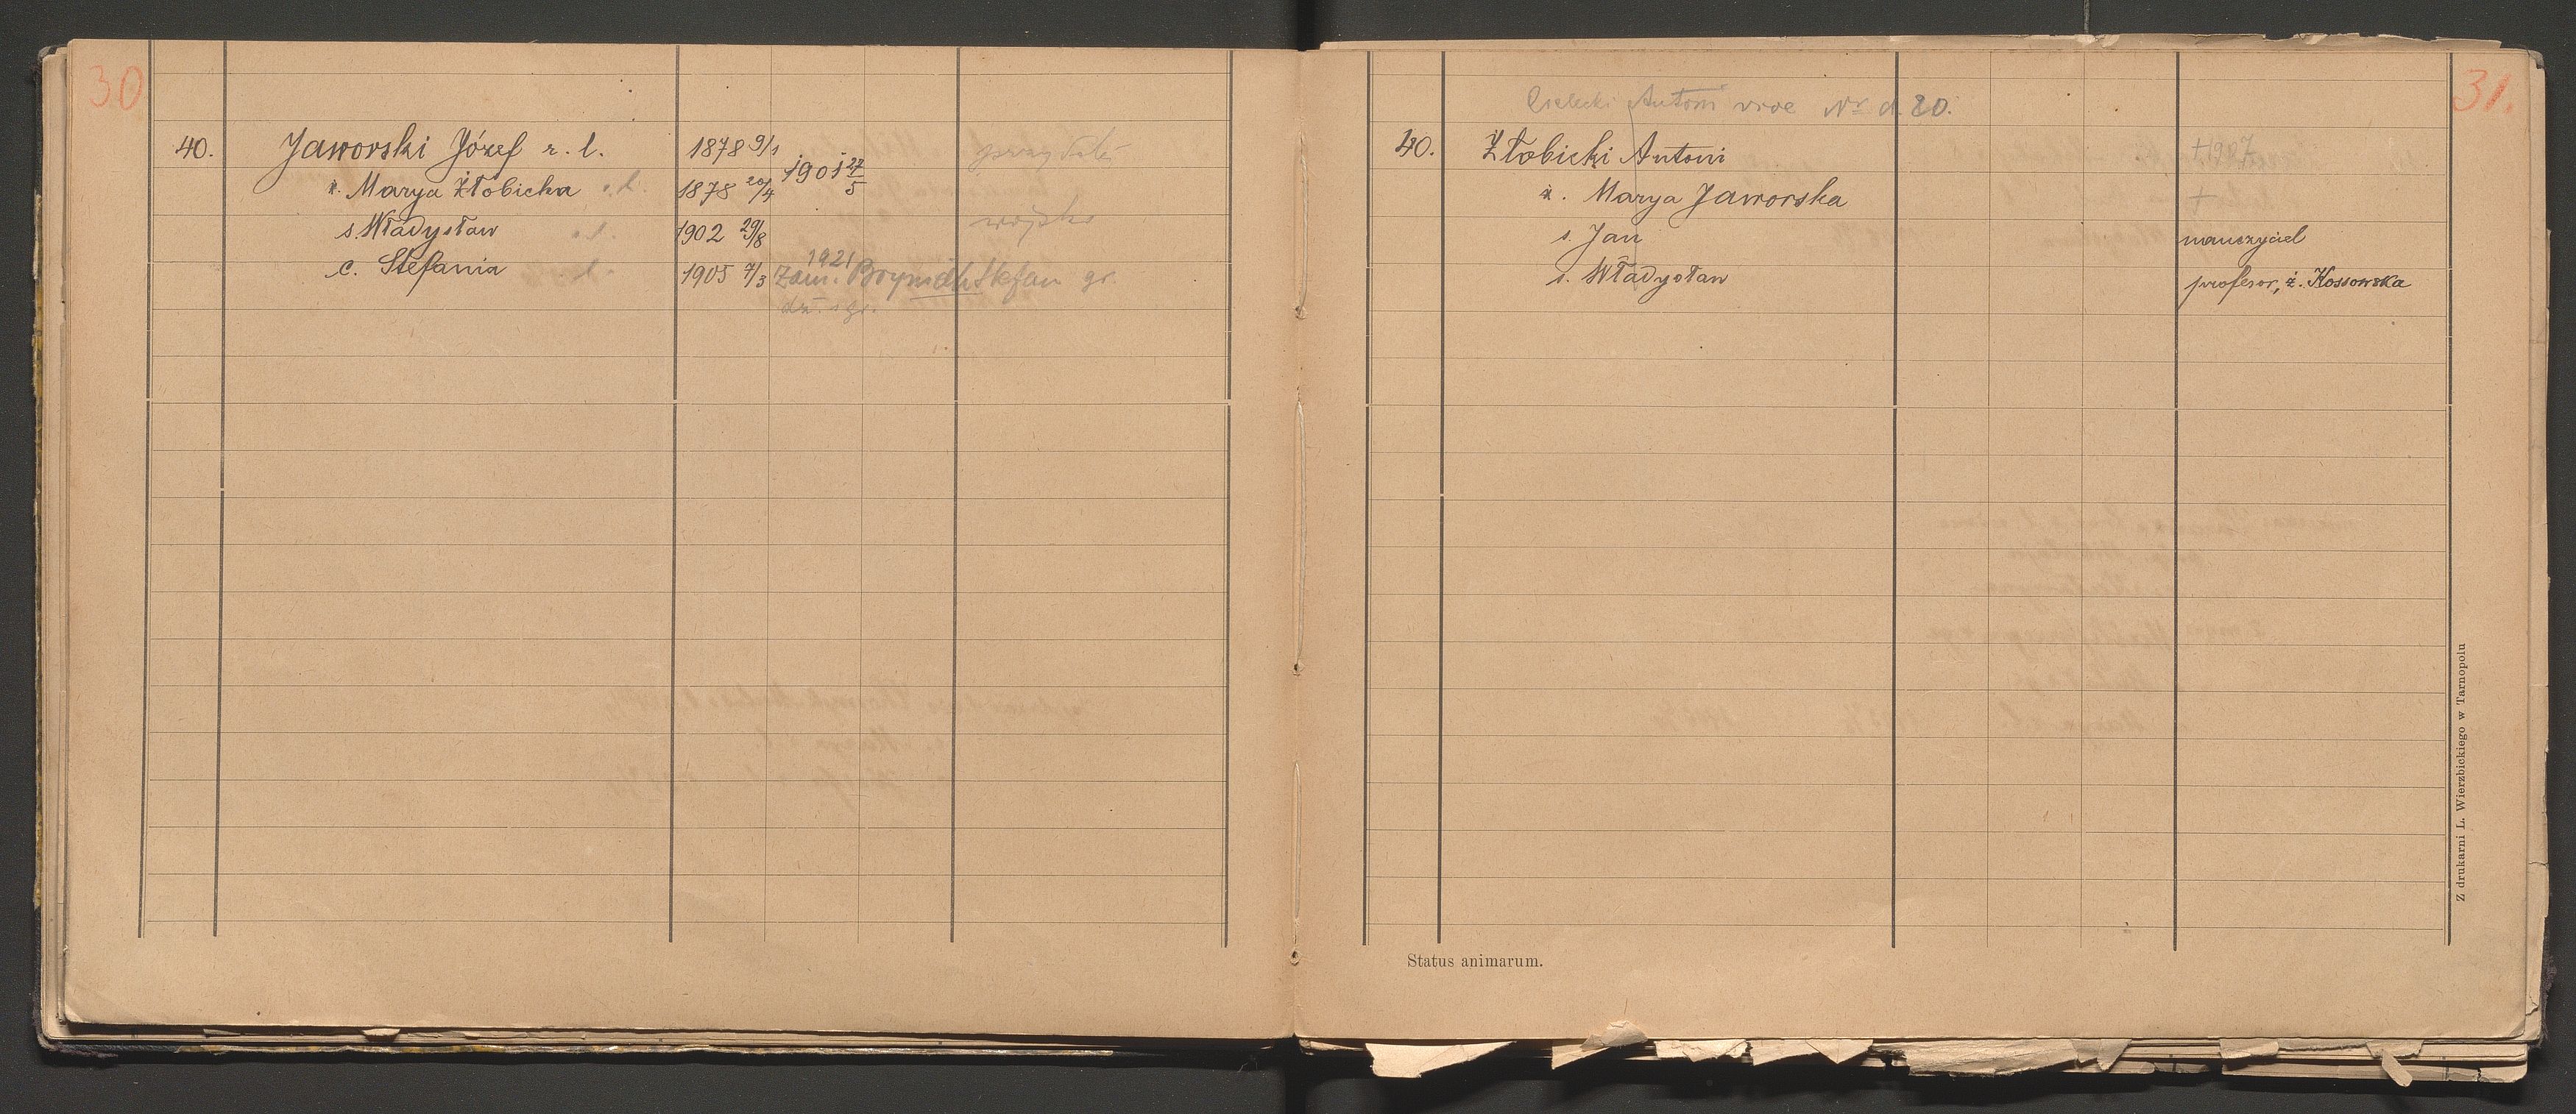 30
40. Jaworski Józef r. l. 1878 9/1
ż. Marya Żłobicka r. l. 1878 20/4 1901 27/5
s. Władysław r. l. 1902 29/8 wojsko
c. Stefania r. l. 1905 7/3 1921 zam. Stefan gr.
31.
Antoni vide Nr d. 20.
40. Żłobicki Antoni + 1907
ż. Marya Jaworska +
s. Jan nauczyciel
s. Władysław profesor, ż. Kossowska
Status animarum.
Z drukarni L. Wierzbickiego w Tarnopolu